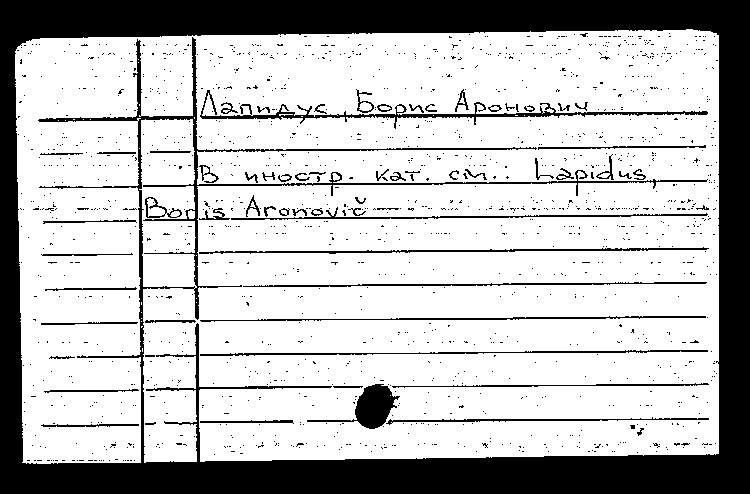 Лапидус, Борис Аронович
В иностр. кат. см.: Lapidus,
Boris Aronovič